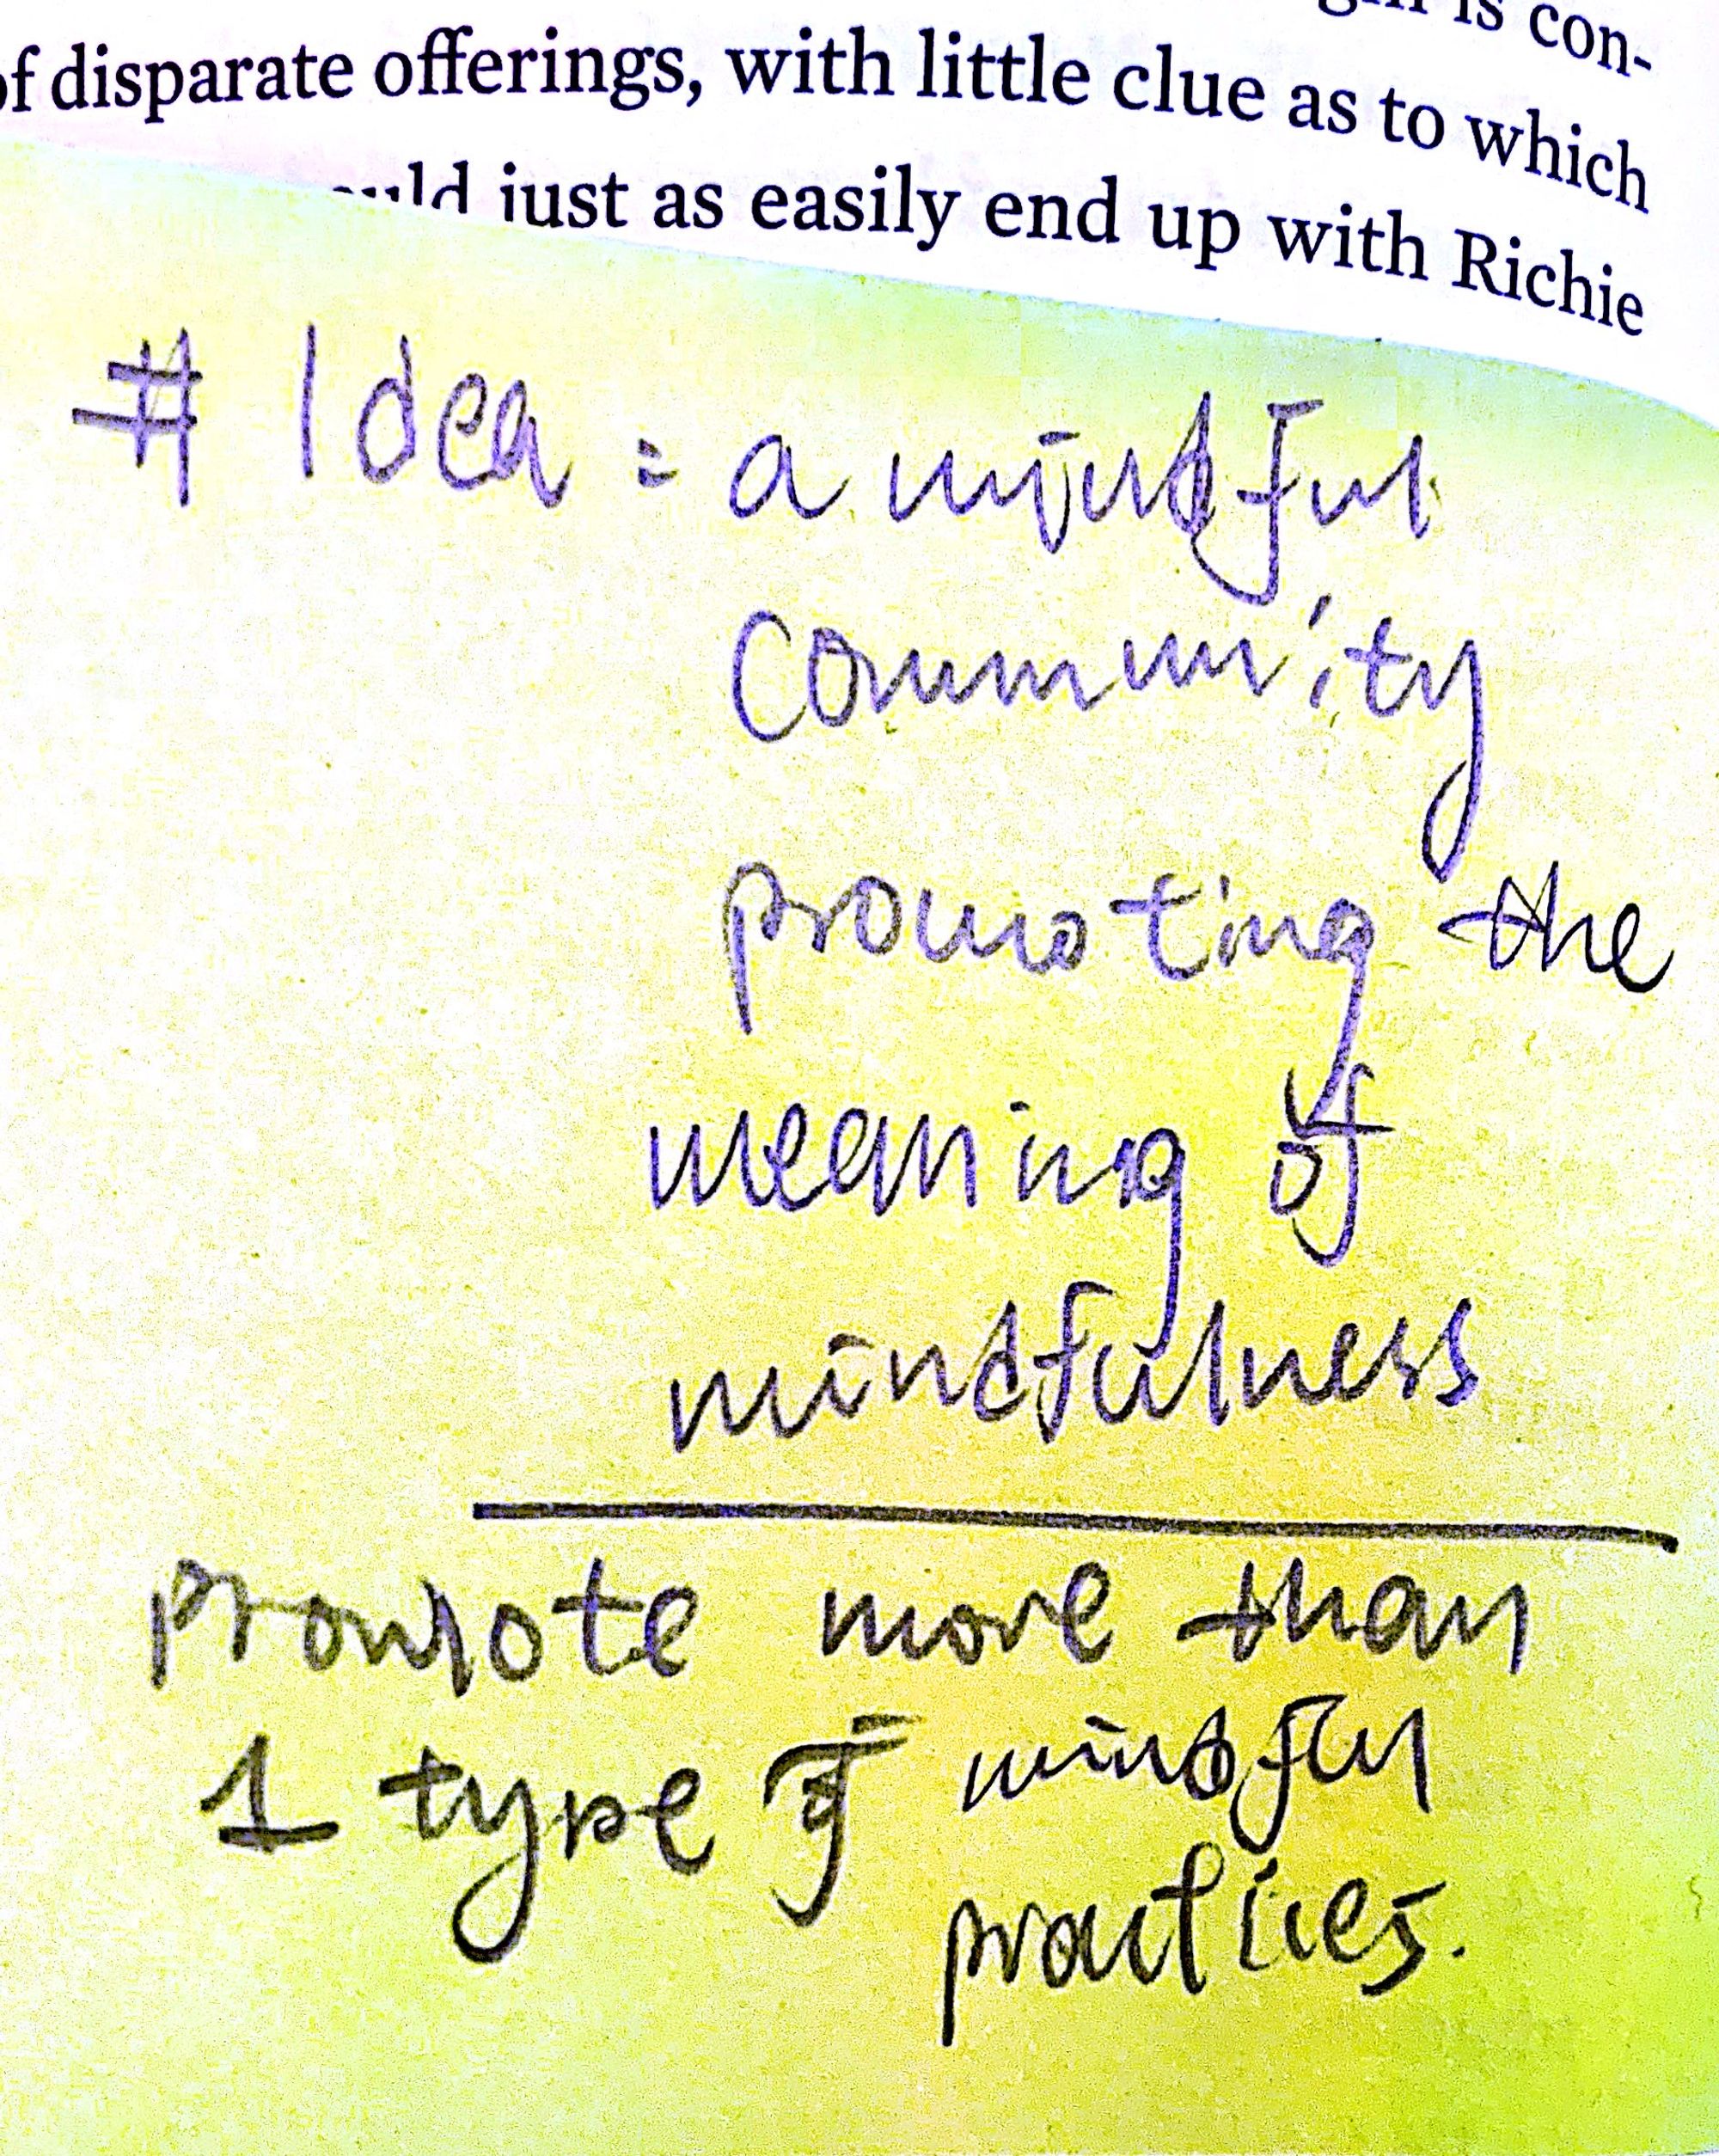 is con-
of disparate offerings, with little clue as to which
just as easily end up with Richie
# Idea : a mindful
community
promoting the
meaning of
mindfulness
promote more than
1 type of mindful
practices.